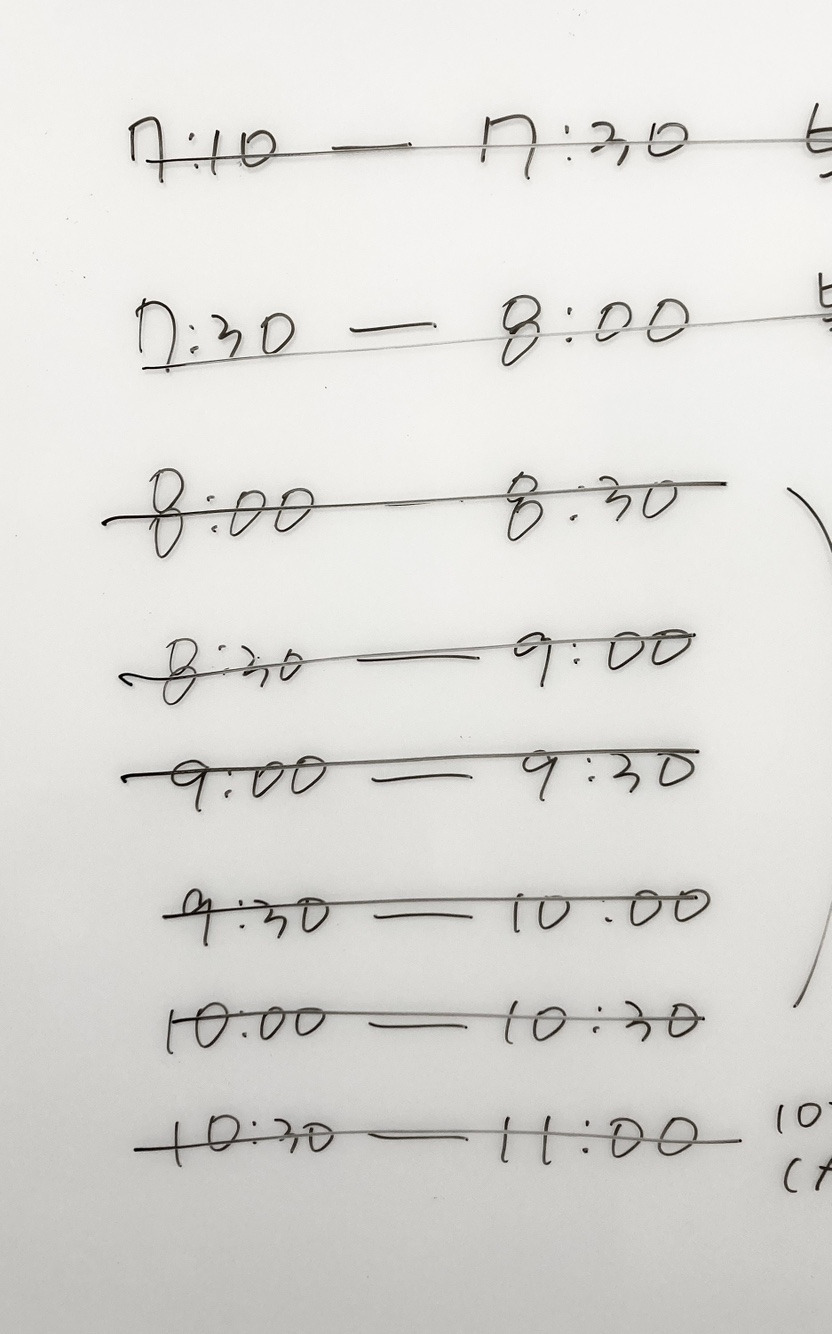 7:10 — 7:30
7:30 — 8:00
8:00 — 8:30
8:30 — 9:00
9:00 — 9:30
9:30 — 10:00
10:00 — 10:30
10:30 — 11:00 10